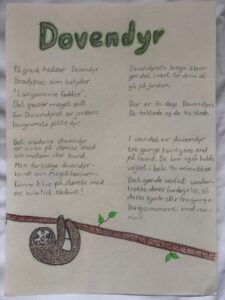 Dovendyr
På græsk hedder Dovendyr
Bradypus, som betyder
"Langsomme fødder".
Det passer meget godt
for Dovendyret er jordens
langsomste pattedyr.
Det moderne dovendyr
er cirka på størrelse med
en mellem stor hund.
Men fortidens dovendyr -
kendt som Megatherium -
kunne blive på størrelse med
en asiatisk elefant!
Dovendyrets lange kløer
gør det svært for dem at
gå på jorden.
Der er to slags Dovendyr:
De totåede og de tretåede.
I vandet er dovendyr
tre gange hurtigere end
på land. De kan også holde
vejret i hele 40 minutter.
Det gør de ved at under-
trykke deres fordøjelse, så
deres hjerte slår tre gange
langsommere end nor-
malt.